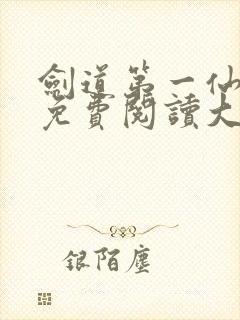 劍道第一仙
免費閱讀大
银陌塵